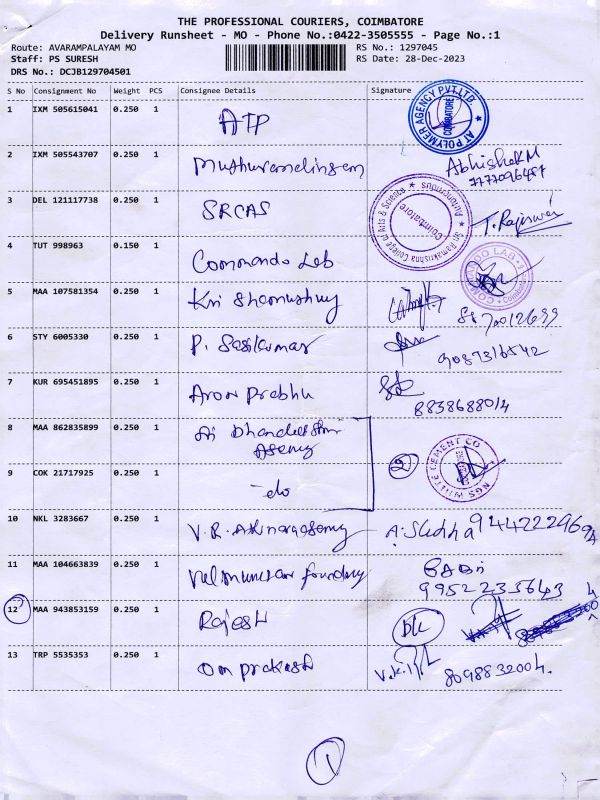 THE PROFESSIONAL COURIERS, COIMBATORE
Delivery Runsheet - MO - Phone No.:0422-3505555 - Page No.:1
Route: AVARAMPALAYAM MO RS No.: 1297045
Staff: PS SURESH RS Date: 28-Dec-2023
DRS No.: DCJB129704501
S No Consignment No Weight PCS Consignee Details Signature
1 IXM 505615041 0.250 1 ATP AT POLYMER AGENCY PVT.LTD. COIMBATORE
2 IXM 505543707 0.250 1 Abhishek M
3 DEL 121117738 0.250 1 SRCAS Sri Ramakrishna College of Arts & Science Autonomous Coimbatore T. Rajeswari
4 TUT 998963 0.150 1 Commando Lab
5 MAA 107581354 0.250 1
6 STY 6005330 0.250 1 P. Sasikumar 9087316542
7 KUR 695451895 0.250 1 Arown Prabhu 8838688014
8 MAA 862835899 0.250 1 Agency
9 COK 21717925 0.250 1 -do 2 NGS WHITE CEMENT CO
10 NKL 3283667 0.250 1 V.R. A. Sudha
11 MAA 104663839 0.250 1 foundry BABU 9952235643
12 MAA 943853159 0.250 1 Rajesh
13 TRP 5535353 0.250 1 Om prakash 8098832004.
1